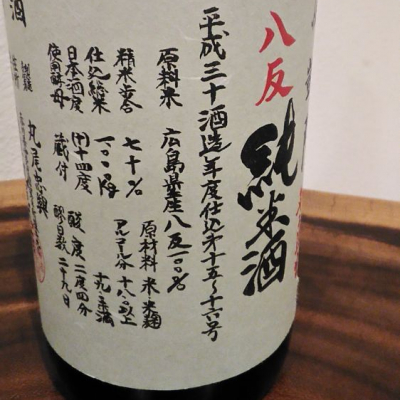 八反
純米酒
平成三十酒造年度仕込第十五〜十六号
原料米 広島県産八反一〇〇%
精米歩合 七十% 原材料 米・米麹
仕込総米 一〇〇〇kg アルコール分 十八以上十九未満
日本酒度 +十四度 酸度 二度四分
使用酵母 蔵付 醪日数 二十九日
酒